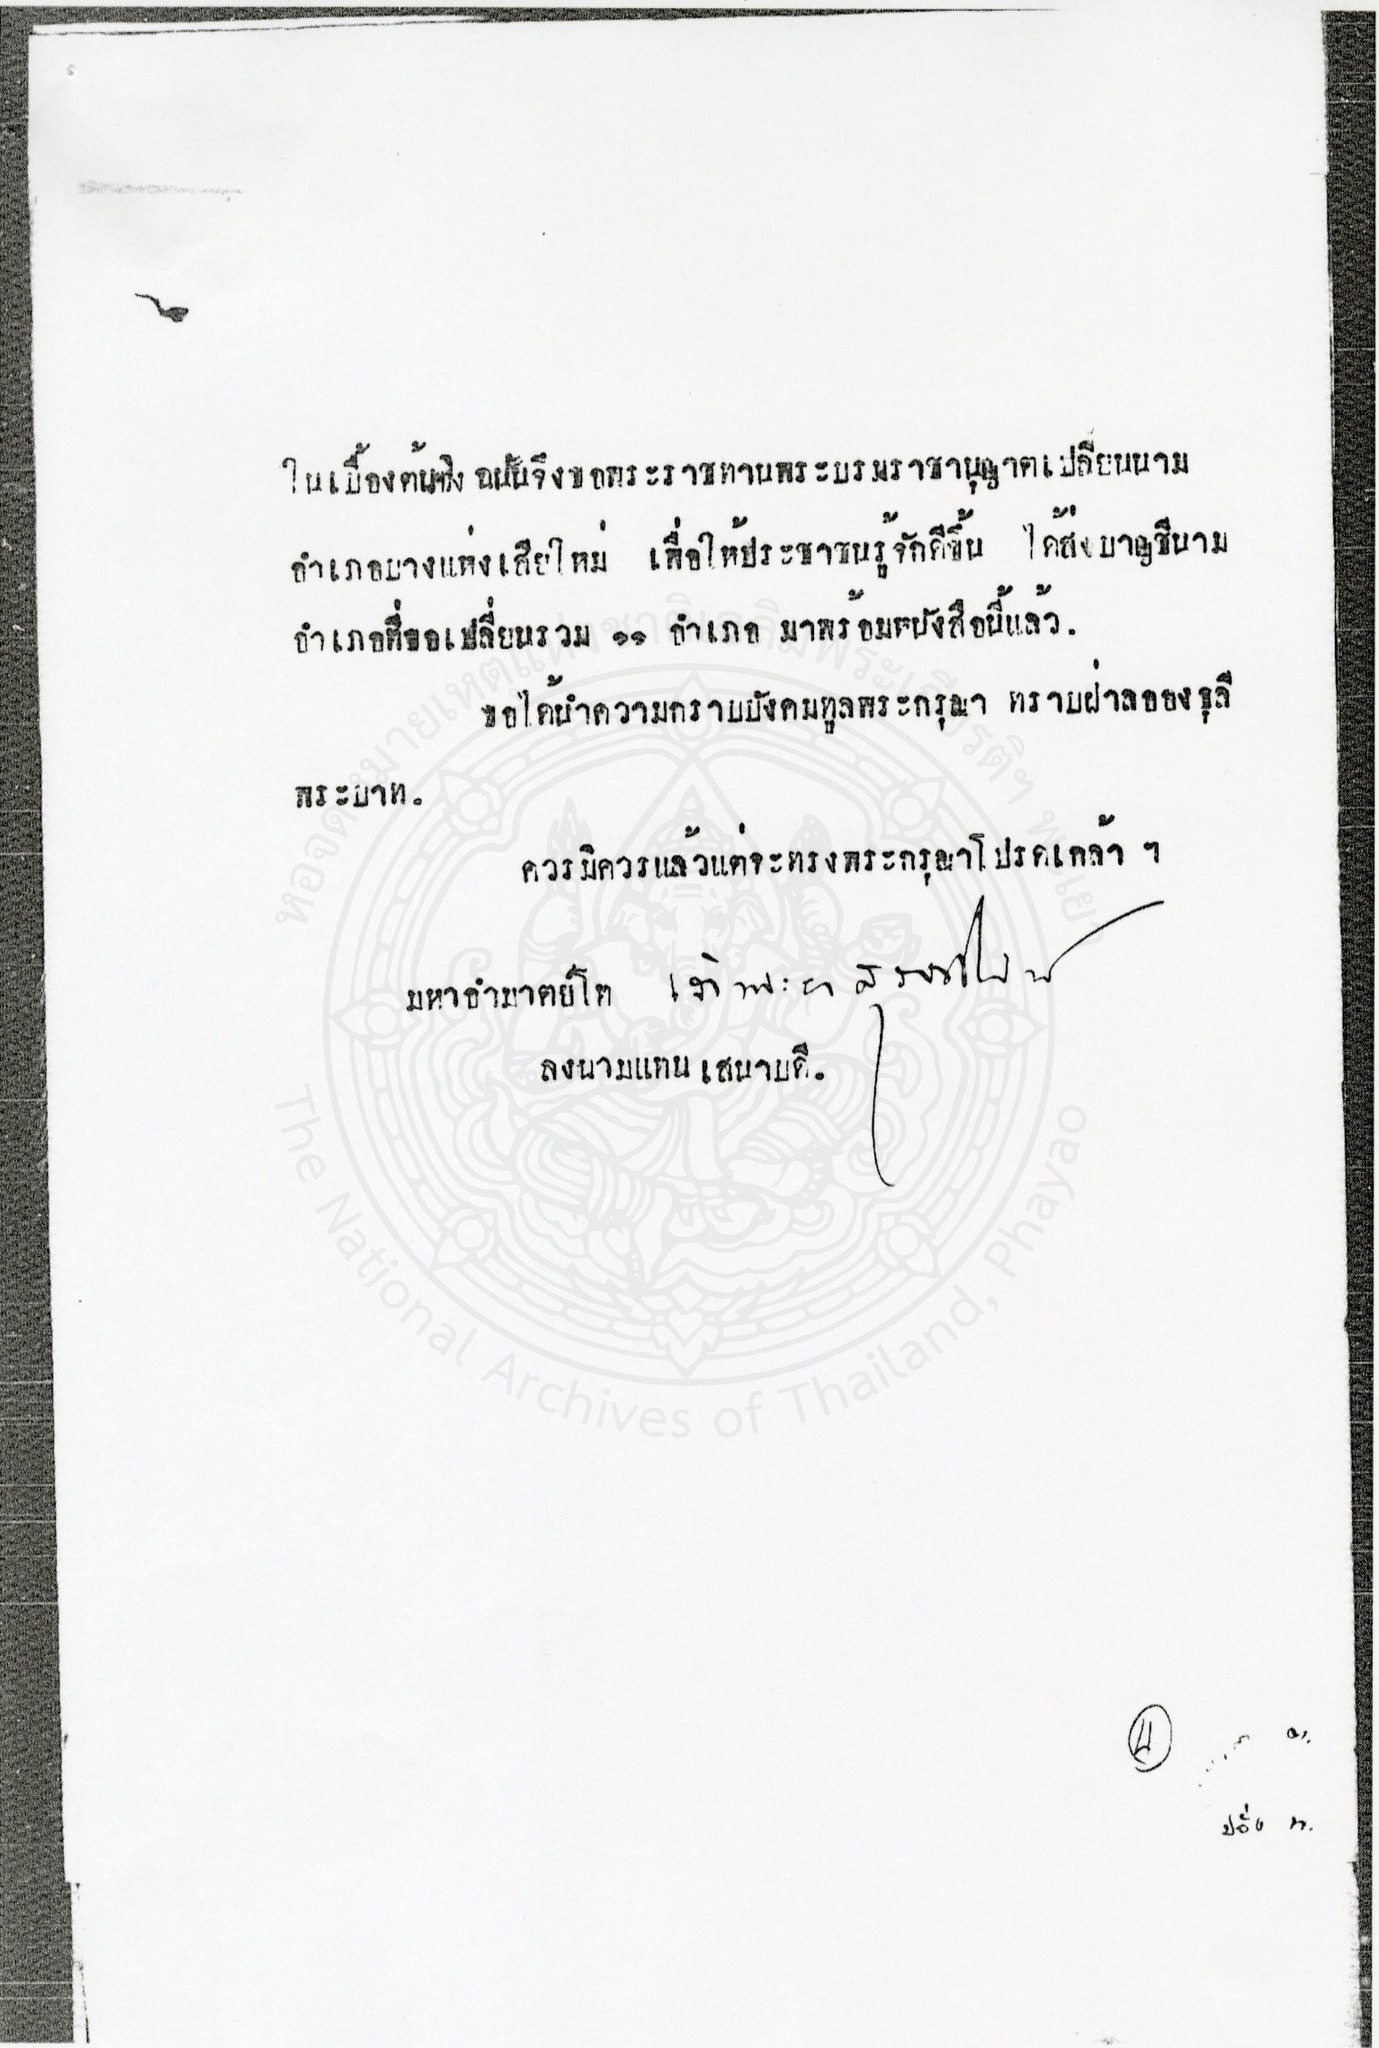 ในเบื้องต้นซึ่ง ฉนั้นจึงขอพระราชทานพระบรมราชานุญาตเปลี่ยนนาม
อำเภอบางแห่งเสียใหม่ เพื่อให้ประชาชนรู้จักดีขึ้น ได้ส่งบาญชีนาม
อำเภอที่ขอเปลี่ยนรวม ๑๑ อำเภอ มาพร้อมหนังสือนี้แล้ว.
ขอได้นำความกราบบังคมทูลพระกรุณา ทราบฝ่าลอองธุลี
พระบาท.
ควรมิควรแล้วแต่จะทรงพระกรุณาโปรดเกล้า ฯ
มหาอำมาตย์โท
ลงนามแทน เสนาบดี.
หอจดหมายเหตุแห่งชาติเฉลิมพระเกียรติฯ พะเยา
The National Archives of Thailand, Phayao